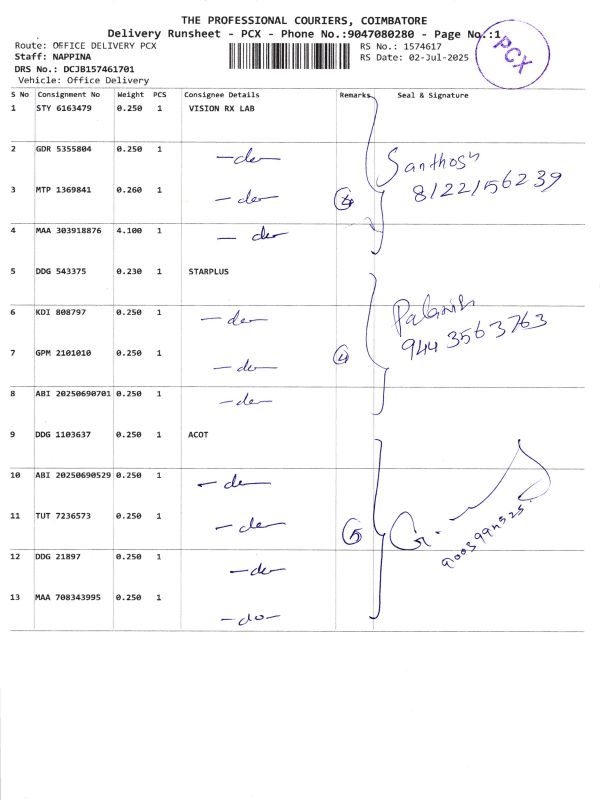 THE PROFESSIONAL COURIERS, COIMBATORE
Delivery Runsheet - PCX - Phone No.:9047080280 - Page No.:1
Route: OFFICE DELIVERY PCX
RS No.: 1574617
Staff: NAPPINA
RS Date: 02-Jul-2025
DRS No.: DCJB157461701
Vehicle: Office Delivery
PCX
S No Consignment No Weight PCS Consignee Details Remarks Seal & Signature
1 STY 6163479 0.250 1 VISION RX LAB
2 GDR 5355804 0.250 1 -do-
Santhosh
3 MTP 1369841 0.260 1 -do- 4 8122156239
4 MAA 303918876 4.100 1 - do-
5 DDG 543375 0.230 1 STARPLUS
6 KDI 808797 0.250 1 -do-
7 GPM 2101010 0.250 1 -do- 4 9443563763
8 ABI 20250690701 0.250 1 -do-
9 DDG 1103637 0.250 1 ACOT
10 ABI 20250690529 0.250 1 -do-
11 TUT 7236573 0.250 1 -do- 5 G.
12 DDG 21897 0.250 1 -do-
13 MAA 708343995 0.250 1 -do-